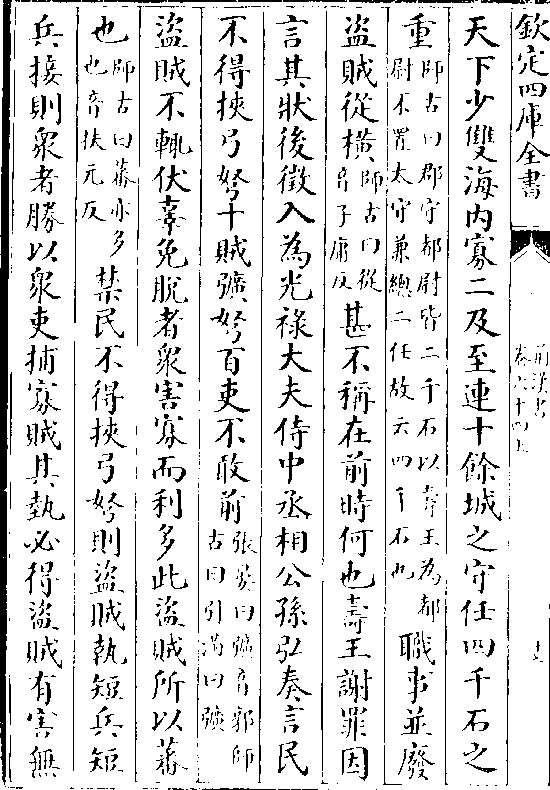 欽定四庫全書
前漢書
卷六十四上
天下少雙海內寡二及至連十餘城之守任四千石之
重師古曰郡守都尉皆二千石以壽王為都
尉不置太守兼總二任故云四千石也職事並廢
盜賊從橫師古曰從
音子庸反甚不稱在前時何也壽王謝罪因
言其狀後徵入為光祿大夫侍中丞相公孫弘奏言民
不得挾弓弩十賊彍弩百吏不敢前張晏曰彍音郭師
古曰引滿曰彍
盜賊不輒伏辜免脫者衆害寡而利多此盜賊所以蕃
也師古曰蕃亦多
也音扶元反禁民不得挾弓弩則盜賊執短兵短
兵接則衆者勝以衆吏捕寡賊其埶必得盜賊有害無